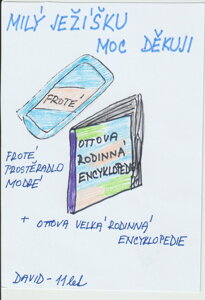 MILÝ JEŽÍŠKU
MOC DĚKUJI
FROTÉ
FROTÉ
PROSTĚRADLO
MODRÉ
OTTOVA
RODINNÁ
ENCYKLOPEDIE
+ OTTOVA VELKÁ RODINNÁ
ENCYKLOPEDIE
DAVID - 11 let